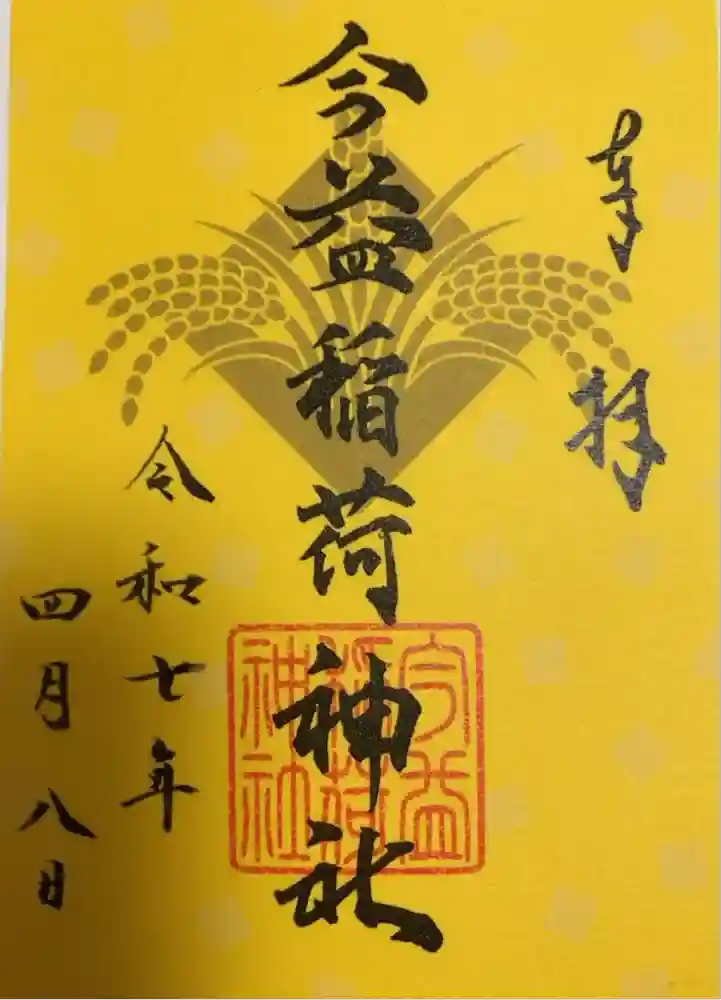 奉拝
今益稲荷神社
今益
稲荷
神社
令和七年
四月八日